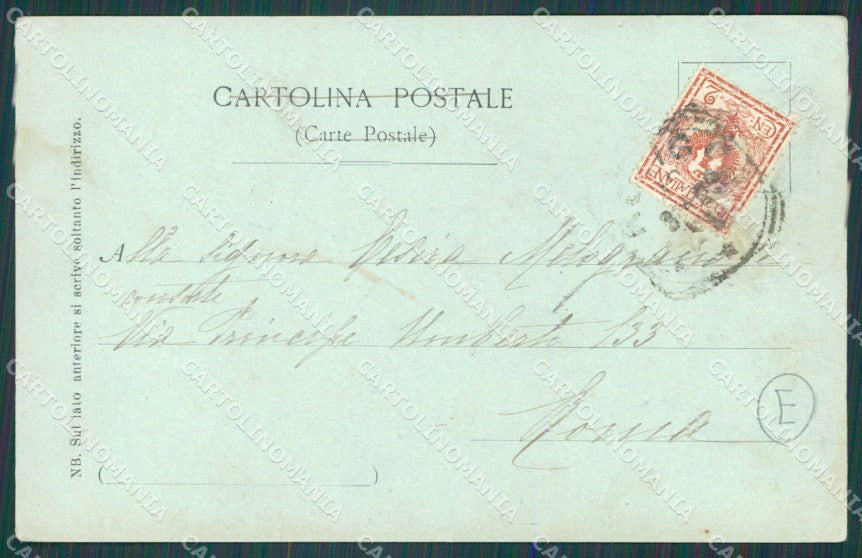 CARTOLINA POSTALE
(Carte Postale)
Alla Signora
Via Principe Umberto 133
Roma
E
NB. Sul lato anteriore si scrive soltanto l'indirizzo.
CEN. 2
CARTOLINOMANIA